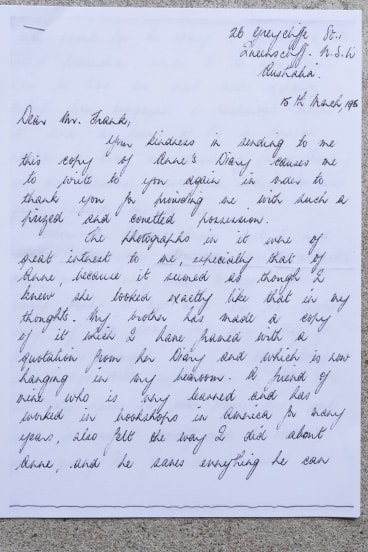 26 Greycliffe St.,
Queenscliff. N.S.W
Australia.
15th March, 196
Dear Mr. Frank,
Your kindness in sending to me
this copy of Anne's Diary causes me
to write to you again in order to
thank you for providing me with such a
prized and coveted possession.
The photographs in it were of
great interest to me, especially that of
Anne, because it seemed as though I
knew she looked exactly like that in my
thoughts. My brother has made a copy
of it which I have framed with a
quotation from her Diary and which is now
hanging in my bedroom. A friend of
mine who is very learned and has
worked in bookshops in America for many
years, also felt the way I did about
Anne, and he saves everything he can